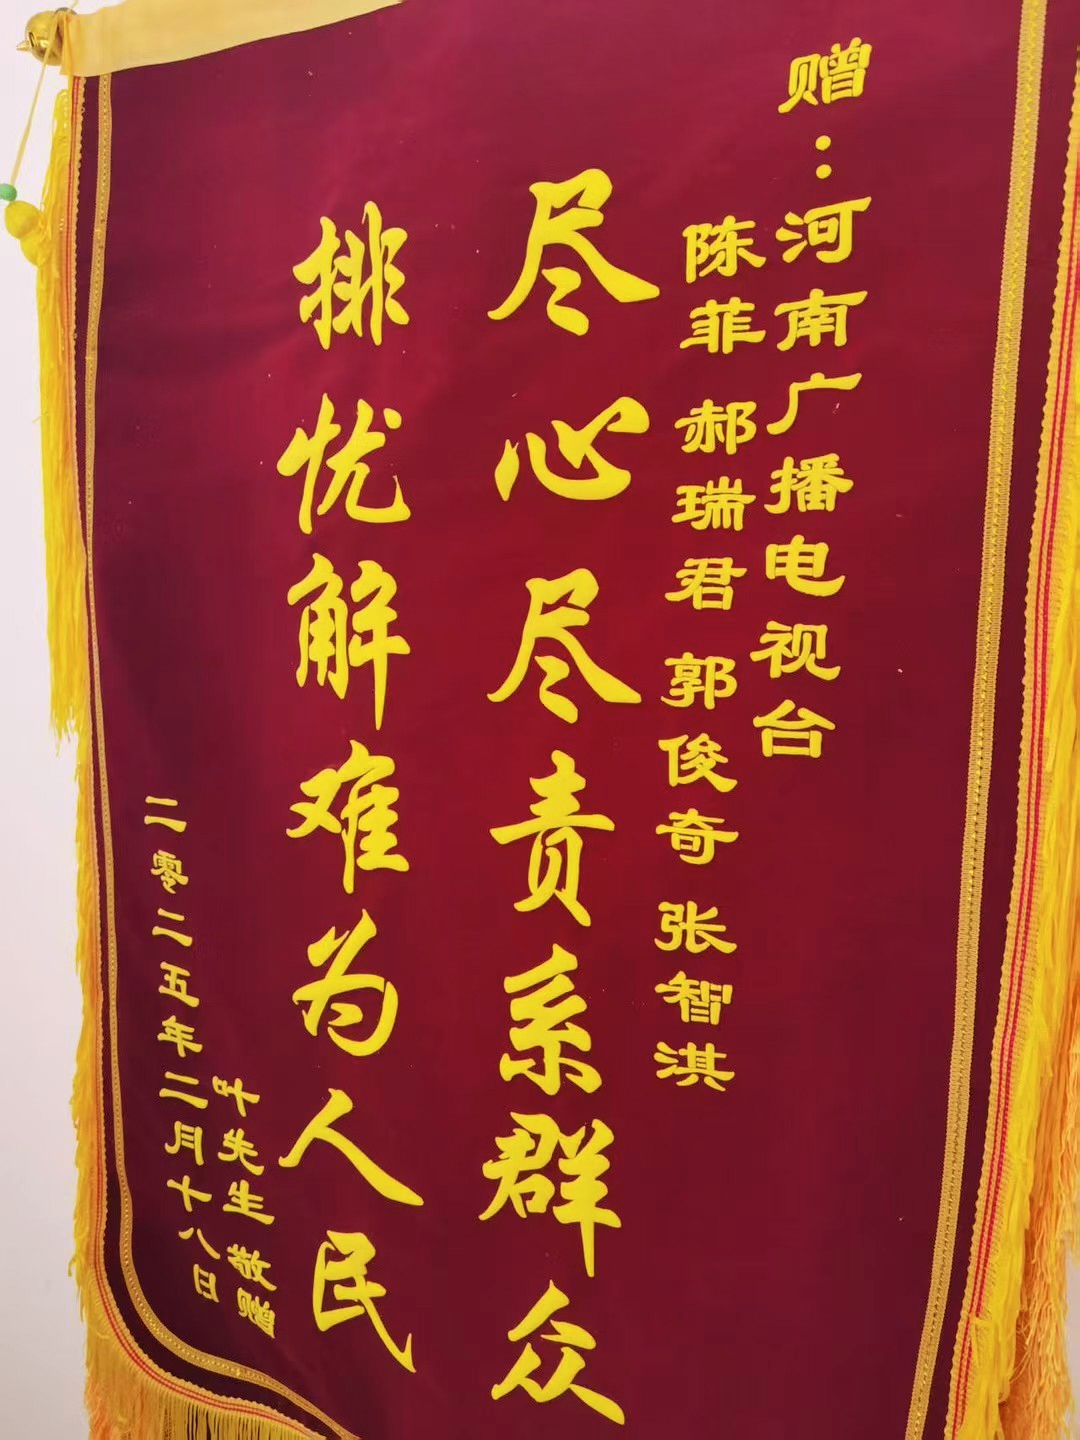 赠：河南广播电视台
陈菲 郝瑞君 郭俊奇 张智淇
尽心尽责系群众
排忧解难为人民
叶先生 敬赠
二零二五年二月十八日